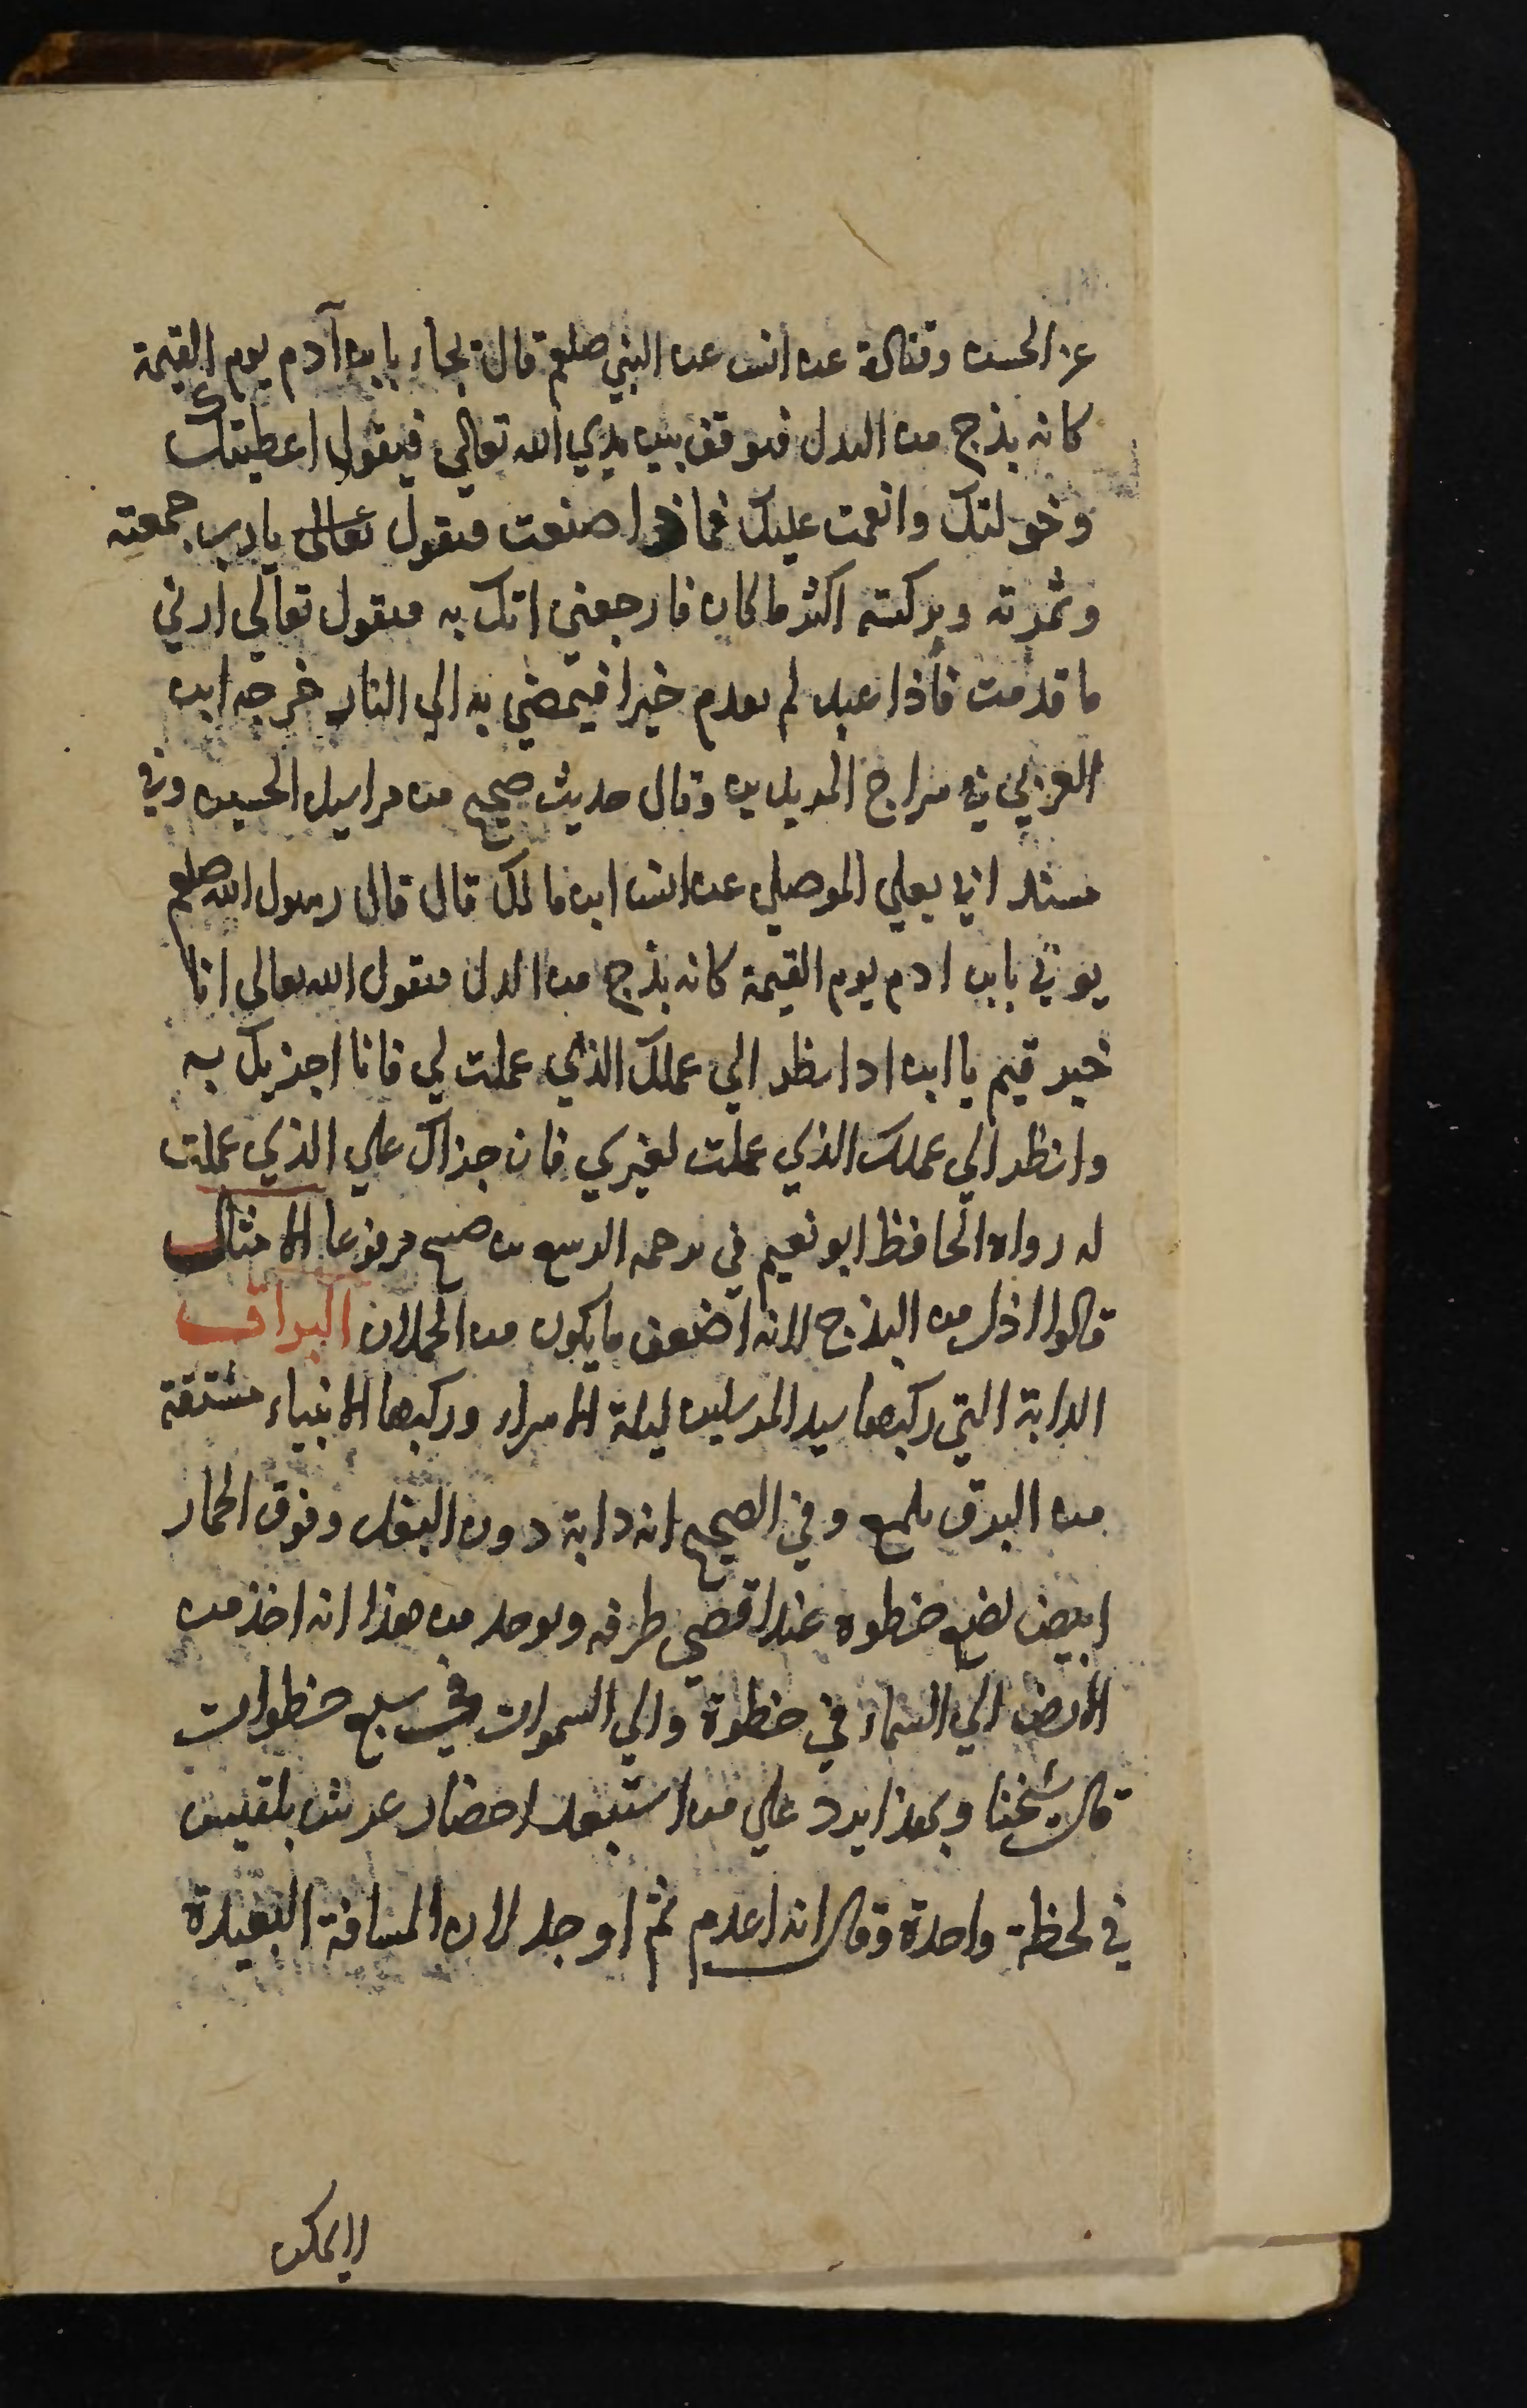 عن الحسن وقتادة عن انس عن النبي صلعم قال يجاء بابن آدم يوم القيمة
كانه بذج من الدل فيوقف بين يدي الله تعالي فيقول اعطيتك
وخولتك وانعمت عليك فماذا صنعت فيقول تعالى يا رب جمعته
وثمرته وتركته اكثر ما كان فارجعني اتك به فيقول تعالي ارني
ما قدمت فاذا عبد لم يقدم خيرا فيمضي به الي النار خرجه ابن
العربي في سراج المريدين وقال حديث صحيح من مراسيل الحسن وفي
مسند ابي يعلي الموصلي عن انس ابن مالك قال قال رسول الله صلعم
يوتي بابن ادم يوم القيمة كانه بذج من الدل فيقول الله تعالى انا
خير قيم يا ابن اد انظر الي عملك الذي عملت لي فانا اجزيك به
وانظر الي عملك الذي عملت لغيري فان جزاك علي الذي عملت
له رواه الحافظ ابو نعيم في ترجمه الربيع بن صبيح مرفوعا الامثال
قالوا اذل من البذج لانه اضعف ما يكون من الحملان البراق
الدابة التي ركبها سيد المرسلين ليلة الاسراء وركبها الانبياء مشتقة
من البرق يلمع وفي الصحيح انه دابة دون البغل وفوق الحمار
ابيض يضع خطوه عند اقصي طرفه ويوخد من هذا انه اخذ من
الارض الي السماء في خطوة والي السموات في سبع خطوات
قال شيخنا وبهذا يرد علي من استبعد احضار عرش بلقيس
في لحظة واحدة وقال انه اعدم ثم اوجد لان المسافة البعيدة
لايمكن